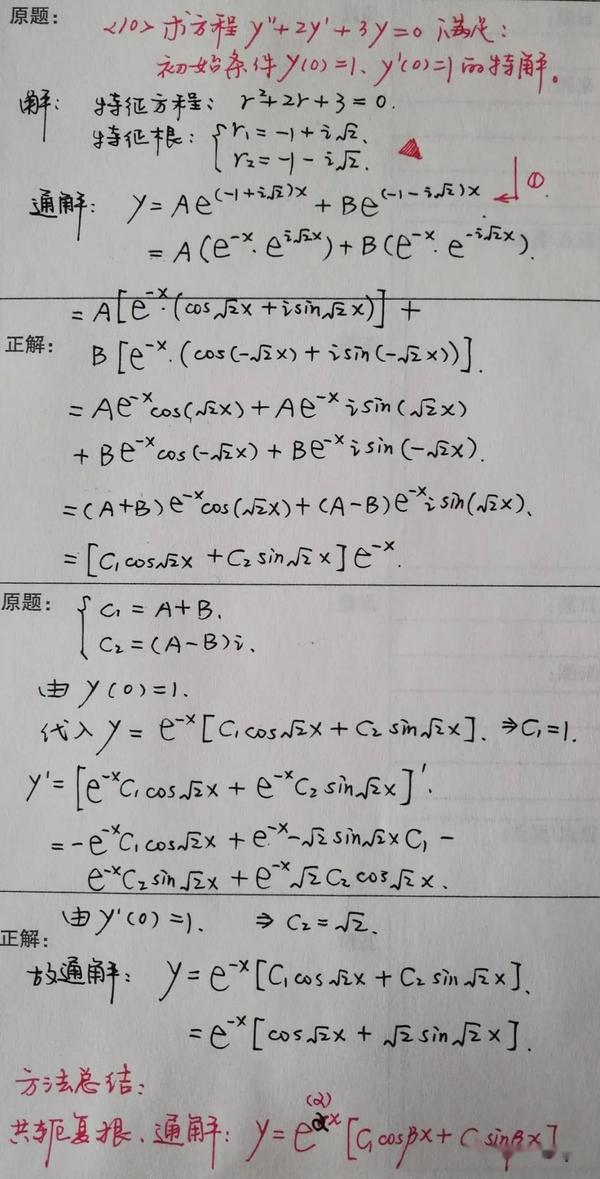 原题：
<10> 求方程 y''+2y'+3y=0 满足：
初始条件 y(0)=1、y'(0)=1 的特解。
解： 特征方程： r²+2r+3=0.
特征根： { r₁=-1+i√2、
r₂=-1-i√2.
通解： y=Ae^{(-1+i√2)x}+Be^{(-1-i√2)x}. ← ①.
=A(e^{-x}·e^{i√2x})+B(e^{-x}·e^{-i√2x}).
=A[e^{-x}·(cos√2x+isin√2x)]+
正解：
B[e^{-x}·(cos(-√2x)+isin(-√2x))].
=Ae^{-x}cos(√2x)+Ae^{-x}isin(√2x)
+Be^{-x}cos(-√2x)+Be^{-x}isin(-√2x).
=(A+B)e^{-x}cos(√2x)+(A-B)e^{-x}isin(√2x)、
=[C₁cos√2x+C₂sin√2x]e^{-x}.
原题： { C₁=A+B、
C₂=(A-B)i、
由 y(0)=1.
代入 y=e^{-x}[C₁cos√2x+C₂sin√2x]. ⇒C₁=1.
y'=[e^{-x}C₁cos√2x+e^{-x}C₂sin√2x]'.
=-e^{-x}C₁cos√2x+e^{-x}-√2sin√2xC₁-
e^{-x}C₂sin√2x+e^{-x}√2C₂cos√2x、
由 y'(0)=1. ⇒ C₂=√2.
正解：
故通解： y=e^{-x}[C₁cos√2x+C₂sin√2x]、
=e^{-x}[cos√2x+√2sin√2x].
方法总结：
(α)
共轭复根、通解： y=e^{αx}[C₁cosβx+C sinβx].